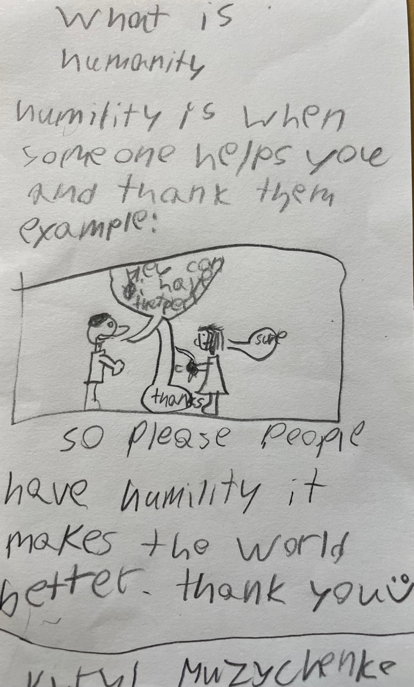 What is
humanity
humility is when
someone helps you
and thank them
example:
Hey can
i have
thanks
sure
so please people
have humility it
makes the world
better. thank you
Muzychenke